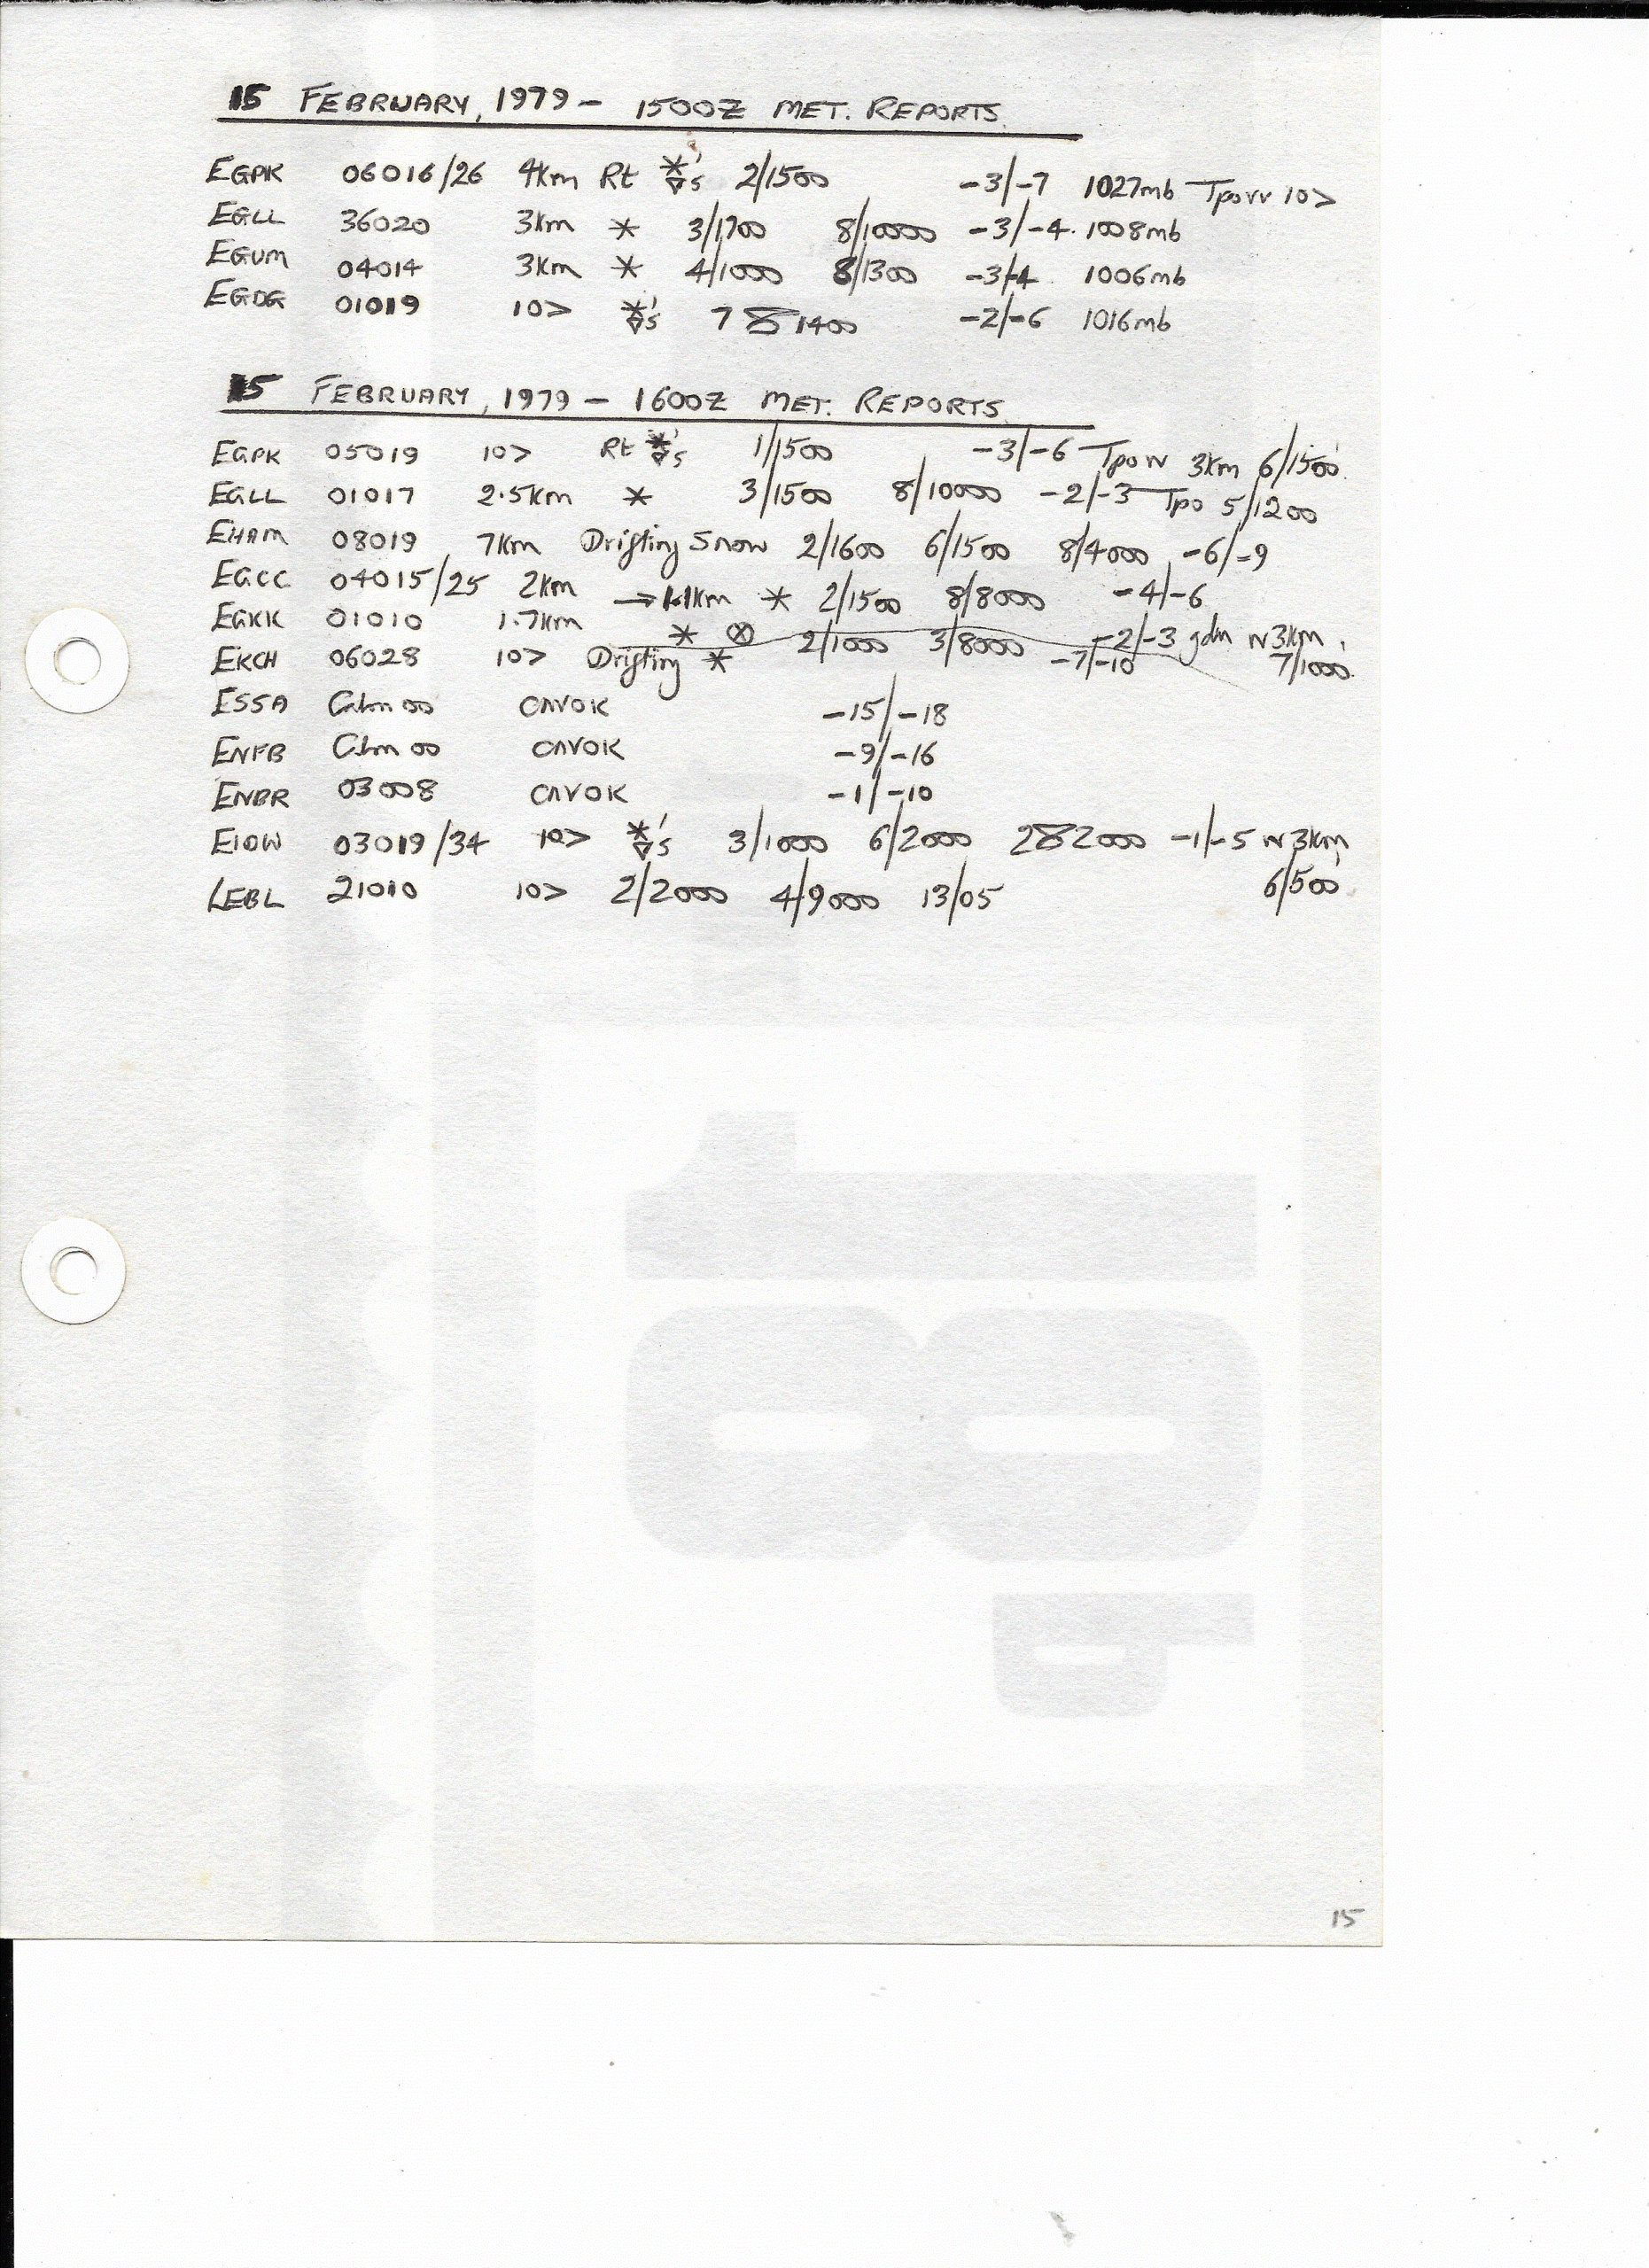 15 FEBRUARY, 1979 - 1500Z MET. REPORTS.
EGPK 06016/26 4km Rt *'s 2/1500 -3/-7 1027mb Tpo w 10>
EGLL 36020 3km * 3/1700 8/10000 -3/-4. 1008mb
EGUM 04014 3km * 4/1000 8/1300 -3/-4 1006mb
EGDG 01019 10> *'s 7 8 1400 -2/-6 1016mb
15 FEBRUARY, 1979 - 1600Z MET. REPORTS
EGPK 05019 10> Rt *'s 1/1500 -3/-6 Tpo w 3km 6/1500.
EGLL 01017 2.5km * 3/1500 8/10000 -2/-3 Tpo 5/1200
EHAM 08019 7km Drifting Snow 2/1600 6/1500 8/4000 -6/-9
EGCC 04015/25 2km → 1.1km * 2/1500 8/8000 -4/-6
EGKK 01010 1.7km * ⊗ 2/1000 3/8000 -2/-3 gdu w 3km, 7/1000.
EKCH 06028 10> Drifting * -7/-10
ESSA Calm 00 CAVOK -15/-18
ENFB Clm 00 CAVOK -9/-16
ENBR 03008 CAVOK -1/-10
EIDW 03019/34 10> *'s 3/1000 6/2000 2 8 2000 -1/-5 w 3km, 6/500.
LEBL 21010 10> 2/2000 4/9000 13/05
18
P
15